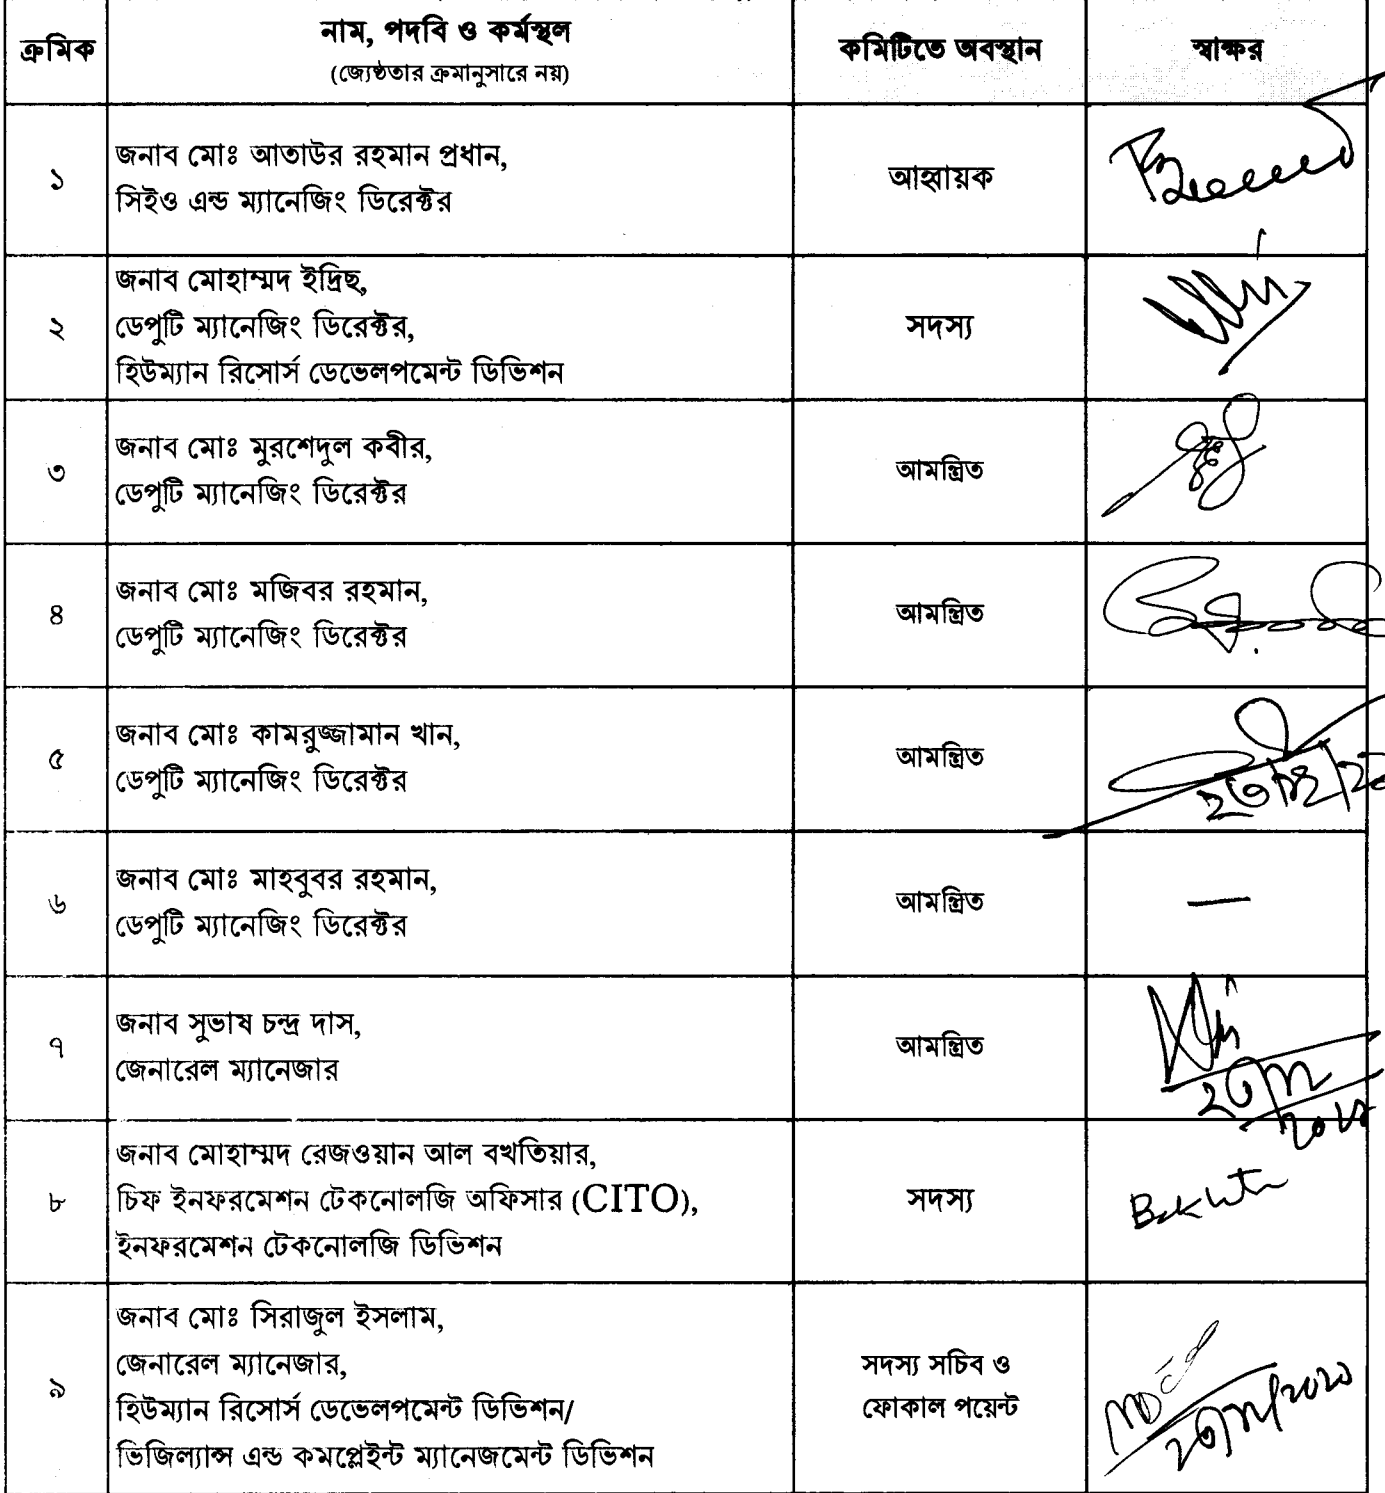 ক্রমিক
নাম, পদবি ও কর্মস্থল
(জ্যেষ্ঠতার ক্রমানুসারে নয়)
কমিটিতে অবস্থান
স্বাক্ষর
১
জনাব মোঃ আতাউর রহমান প্রধান,
সিইও এন্ড ম্যানেজিং ডিরেক্টর
আহ্বায়ক
২
জনাব মোহাম্মদ ইদ্রিছ,
ডেপুটি ম্যানেজিং ডিরেক্টর,
হিউম্যান রিসোর্স ডেভেলপমেন্ট ডিভিশন
সদস্য
৩
জনাব মোঃ মুরশেদুল কবীর,
ডেপুটি ম্যানেজিং ডিরেক্টর
আমন্ত্রিত
৪
জনাব মোঃ মজিবর রহমান,
ডেপুটি ম্যানেজিং ডিরেক্টর
আমন্ত্রিত
৫
জনাব মোঃ কামরুজ্জামান খান,
ডেপুটি ম্যানেজিং ডিরেক্টর
আমন্ত্রিত
৬
জনাব মোঃ মাহবুবর রহমান,
ডেপুটি ম্যানেজিং ডিরেক্টর
আমন্ত্রিত
—
৭
জনাব সুভাষ চন্দ্র দাস,
জেনারেল ম্যানেজার
আমন্ত্রিত
৮
জনাব মোহাম্মদ রেজওয়ান আল বখতিয়ার,
চিফ ইনফরমেশন টেকনোলজি অফিসার (CITO),
ইনফরমেশন টেকনোলজি ডিভিশন
সদস্য
৯
জনাব মোঃ সিরাজুল ইসলাম,
জেনারেল ম্যানেজার,
হিউম্যান রিসোর্স ডেভেলপমেন্ট ডিভিশন/
ভিজিল্যান্স এন্ড কমপ্লেইন্ট ম্যানেজমেন্ট ডিভিশন
সদস্য সচিব ও
ফোকাল পয়েন্ট